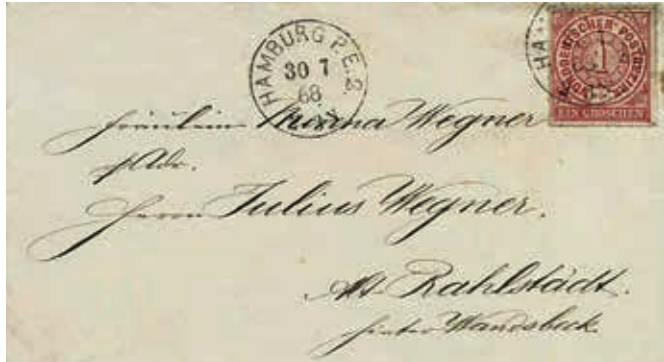 HAMBURG P.E.2
30 7
68
HA
NORDDEUTSCHER POSTBEZIRK
1
EIN GROSCHEN
Fräulein Minna Wegner
p. Adr.
Herrn Julius Wegner.
Alt Rahlstädt.
hinter Wandsbeck.